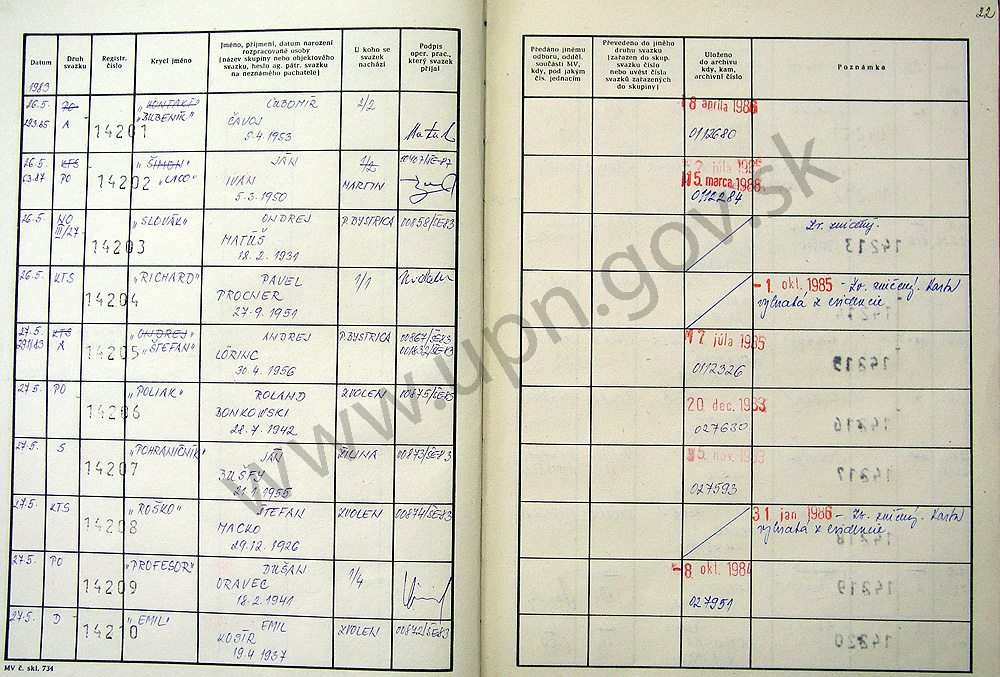 22
Datum
Druh svazku
Registr. číslo
Krycí jméno
Jméno, příjmení, datum narození rozpracované osoby (název skupiny nebo objektového svazku, heslo ag. pátr. svazku na neznámého pachatele)
U koho se svazek nachází
Podpis oper. prac., který svazek přijal
Předáno jinému odboru, odděl. součásti MV, kdy, pod jakým čís. jednacím
Převedeno do jiného druhu svazku (zařazen do skup. svazku číslo nebo uvést čísla svazků zařazených do skupiny)
Uloženo do archivu kdy, kam, archivní číslo
Poznámka
1983
26.5. PO "KONTAKT" ĽUBOMÍR 1/2
29.3.85 A 14201 "BUBENÍK" ČAVOJ
5.4.1953
18 apríla 1986
0112680
26.5. KTS "ŠIMON" JÁN 1/2
PO 14202 "LACO" IVAN MARTIN
5.3.1950
15. marca 1988
0112284
26.5. NO "SLOVÁK" ONDREJ P. BYSTRICA 00858/SE-83
III/27 14203 MATÚŠ
18.2.1931
Zv. zničený.
26.5. KTS "RICHARD" PAVEL 1/1
14204 PROCNER
27.9.1951
-1. okt. 1985 - Zv. zničený. Karta
vybratá z evidencie
27.5. KTS "ONDREJ" ANDREJ P. BYSTRICA 00867/SE-83
A 14205 "ŠTEFAN" LÖRINC
30.4.1956
17. júla 1985
0112326
27.5. PO "POLIAK" ROLAND ZVOLEN 00875/SE-83
14206 BONKOWSKI
28.7.1942
20. dec. 1983
027630
27.5. S "POHRANIČNÍK" JÁN ŽILINA 00873/SE-83
14207
21.1.1955
15. nov. 1983
027593
27.5. KTS "ROŠKO" ŠTEFAN ZVOLEN 00874/SE-83
14208 MACKO
29.12.1926
31 jan. 1986 - Zv. zničený. Karta
vybratá z evidencie
27.5. PO "PROFESOR" DUŠAN 1/4
14209 ORAVEC
18.2.1941
-8. okt. 1984
027951
27.5. D "EMIL" EMIL ZVOLEN 00872/SE-83
14210
19.4.1937
MV č. skl. 734
www.upn.gov.sk